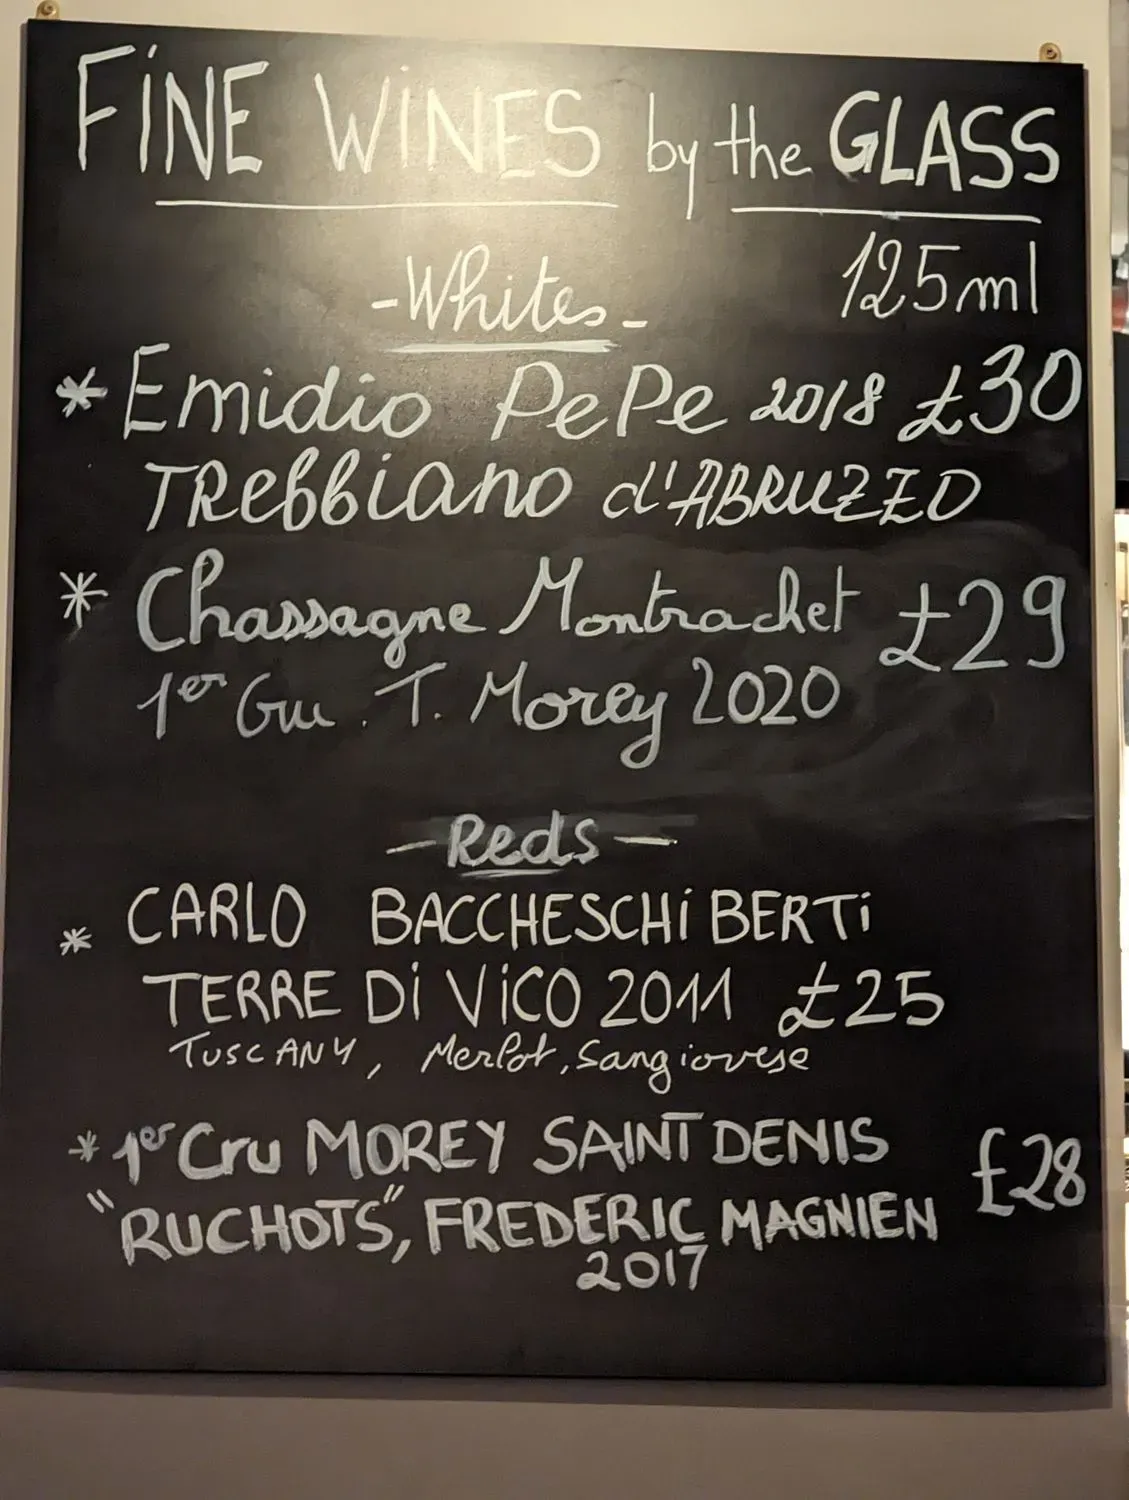 FiNE WiNES by the GLASS
-Whites- 125ml
* Emidio PePe 2018 £30
TRebbiano d'ABRUZZO
* Chassagne Montrachet £29
1er Cru. T. Morey 2020
- Reds -
* CARLO BACCHESCHi BERTi
TERRE Di ViCO 2011 £25
TUSCANY, Merlot, Sangiovese
* 1er Cru MOREY SAINT DENIS £28
"RUCHOTS", FREDERIC MAGNIEN
2017